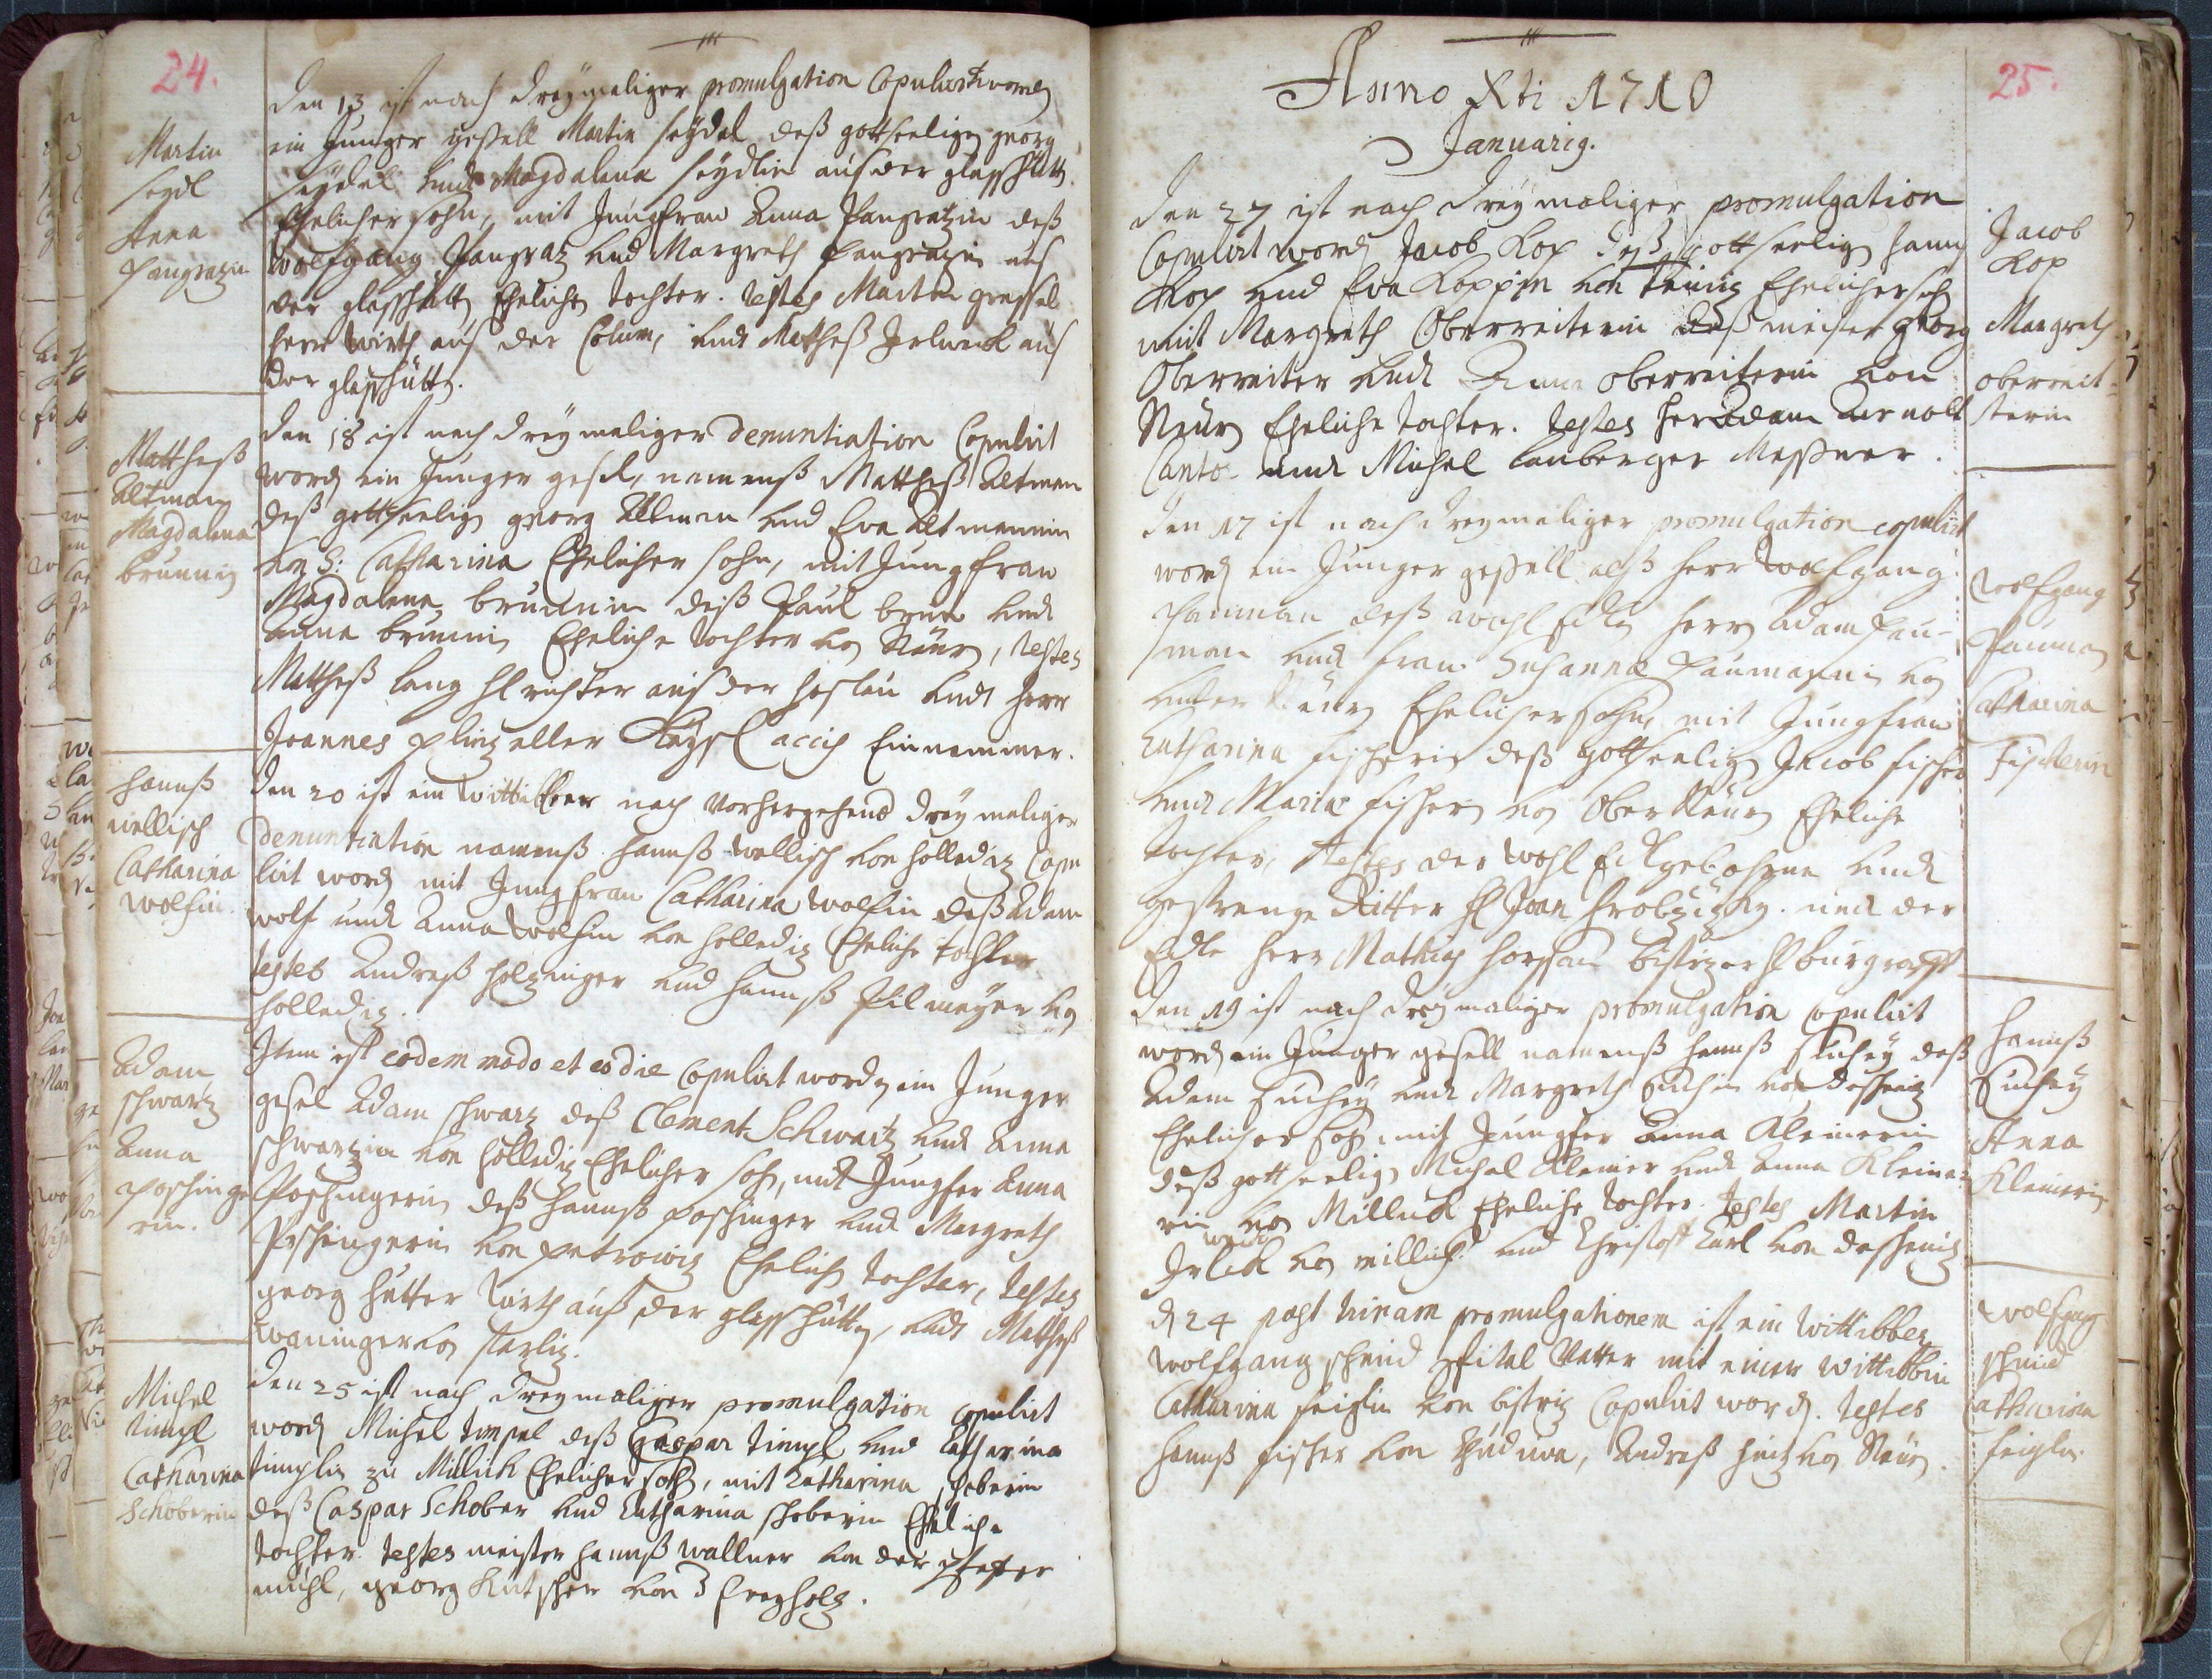 24.
Martin
seydl
Anna
Pangrazin
Den 13 ist nach dreymaliger promulgation Copulirt worden
ein Junger gesell Martin seydel deß gottseeligen georg
seydel undt Magdalena seydlin aus der glasshütten
Ehelicher sohn, mit Jungfrau Anna Pangratzin deß
Wolfgang Pangraz und Margreth Pangrazin aus
der glasshütten Eheliche tochter. testes Martin grassel
herr wirth aus der undt Matheß aus
der glasshütten.
Matheß
Altman
Magdalena
brunnin
Den 18 ist nach dreymaliger denuntiation Copulirt
worden ein Junger gesel, namenß Matheß Altman
deß gottseeligen georg Altman und Eva Altmannin
von S: Catharina Ehelicher sohn, mit Jungfrau
Magdalena brunnin deß Paul brun undt
Anna brunnin Eheliche tochter von Neurn, testes
Matheß lang richter aus der undt herr
Joannes Einnemmer.
Hannß
wellisch
Catharina
wolfin.
Den 20 ist ein wittibber nach vorhergehend dreymaliger
denuntiation namenß hannß wellisch von hollediz Copu
lirt worden mit Jungfrau Catharina wolfin deß Adam
wolf undt Anna wolfin von hollediz Eheliche tochter
testes Andreaß holzinger und hannß Pilmeyer von
hollediz.
Adam
schwartz
Anna
poschinge
rin.
Item ist eodem modo et eo die Copulirt worden ein Junger
gesel Adam schwarz deß Clement Schwartz undt Anna
schwarzin von hollediz Ehelicher sohn, mit Jungfer Anna
Poschingerin deß hannß poschinger undt Margreth
Poschingerin von petrowiz Eheliche tochter, testes
georg hutter wirth auß der glasshütten, undt Matheß
waninger von
Michel
timpl
Catharina
Schoberin
Den 25 ist nach dreymaliger promulgation Copulirt
worden Michel timpel deß Caspar timpl und Catharina
timplin zu Millick Ehelicher sohn, mit Catharina schoberin
deß Caspar Schober und Catharina schoberin Eheliche
tochter. testes meister hannß wallner von der
mühl, georg Kutscher von
Anno Xti 1710
Januarij.
25.
Den 27 ist nach dreymaliger promulgation
Copulirt worden Jacob Kop deß gottseeligen hannß
Kop und Eva Koppin von Ehelicher sohn
mit Margreth Oberreiterin deß meister georg
Oberreiter undt Anna Oberreiterin von
Neurn Eheliche tochter. testes herr Adam Arnolt
Cantor undt Michel lanberger Messner.
Jacob
Kop
Margreth
oberreit-
terin
Den 17 ist nach dreymaliger promulgation copulirt
worden ein Junger gesell alß herr Wolfgang
Pauman deß wohl Edlen herrn Adam Pau-
man undt frau Susanna Paumanin von
Unter Neurn Ehelicher sohn, mit Jungfrau
Catharina fischerin deß gottseeligen Jacob fischer
undt Maria fischerin von Ober Neurn Eheliche
tochter, testes der Wohl Edlgebohrne undt
gestrenge Ritter H Joan undt der
Edle herr Mathias bistrizer burgraff
wolfgang
Pauman
Catharina
Fischerin
Den 19 ist nach dreymaliger promulgation Copulirt
worden ein Junger gesell namenß hannß Suchey deß
Adam Suchey undt Margreth Suchin von deschenitz
Ehelicher sohn, mit Jungfer Anna Kleinerin
deß gottseeligen Michal Kleiner undt Anna Kleine-
rin von Millick Eheliche tochter. testes Martin
von millick. und Christoff Karl von deschenitz
Hannß
Suchey
Anna
Kleinerin
d 24 post trinam promulgationem ist ein wittibber
wolfgang schmid Spital Vatter mit einer wittibbin
Catharina feiglin von bistriz Copulirt worden. testes
hannß fischer von Andreß von Neurn.
wolfgang
schmid
Catharina
feiglin.